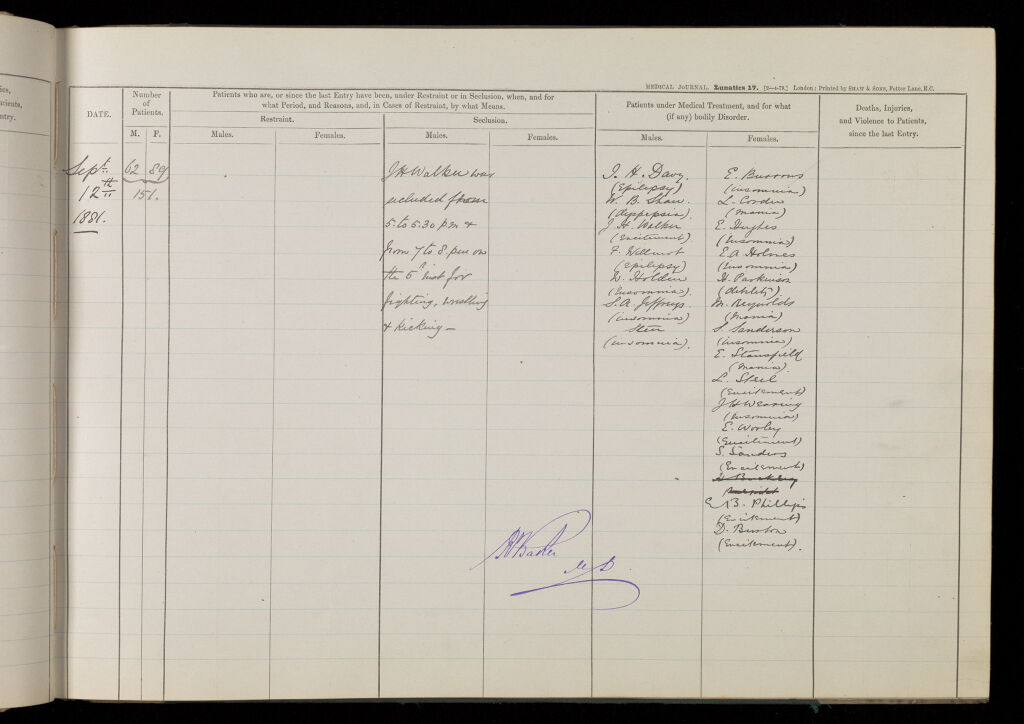 ies,
atients,
ntry.
MEDICAL JOURNAL. Lunatics 17. [2—4—78.] London: Printed by SHAW & SONS, Fetter Lane, E.C.
DATE.
Number
of
Patients.
M. F.
Patients who are, or since the last Entry have been, under Restraint or in Seclusion, when, and for
what Period, and Reasons, and, in Cases of Restraint, by what Means.
Restraint.
Seclusion.
Males. Females. Males. Females.
Patients under Medical Treatment, and for what
(if any) bodily Disorder.
Males. Females.
Deaths, Injuries,
and Violence to Patients,
since the last Entry.
Sept.
12th
1881.
62 89
151.
J H Walker was
secluded from
5 to 5.30 p.m &
from 7 to 8 p.m on
the 5th inst for
fighting, wrestling
& kicking —
J. H. Davy
(Epilepsy)
W. B. Shaw
(dyspepsia).
J. H. Walker
(Excitement).
F. Willmot
(epilepsy)
D. Holden
(Insomnia).
S. A. Jeffreys
(insomnia)
Steer
(insomnia).
E. Burrows
(insomnia)
L. Corder
(mania)
E. Hughes
(insomnia)
E. A. Holmes
(insomnia)
H. Parkinson
(debility).
M. Reynolds
(mania)
S. Sanderson
(insomnia)
E. Stansfield
(mania).
L. Steel
(Excitement)
J H Wearing
(insomnia)
E. Worley
(Excitement)
S. Sanders
(Excitement)
E B. Phillips
(Excitement)
D. Burston
(Excitement).
Baker
M D.